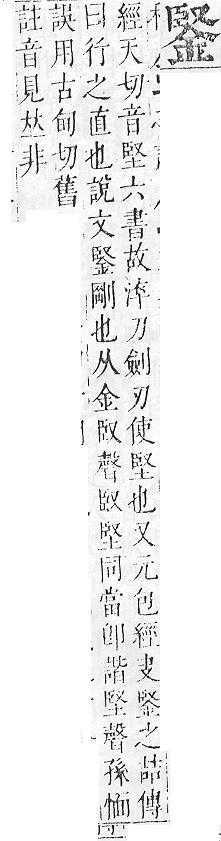 鋻
經天切音堅六書故淬刀劍刃使堅也又元包經叏鋻之喆傳
曰行之直也說文鋻剛也从金臤聲臤堅同當卽諧堅聲孫愐
訣用古甸切舊
註音見𠀤非